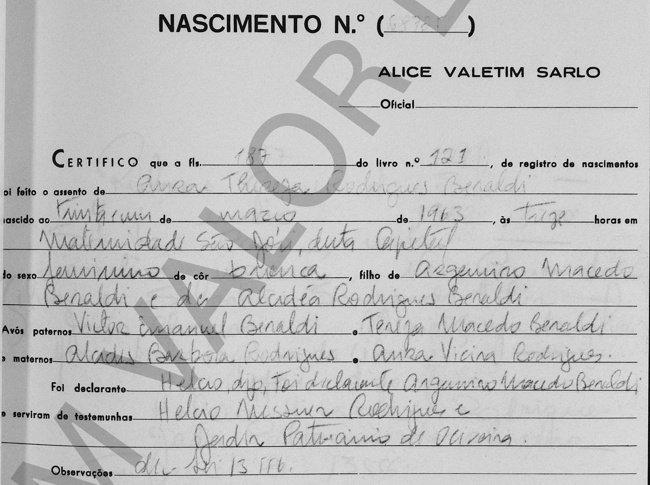 NASCIMENTO N.º ( )
ALICE VALETIM SARLO
Oficial
CERTIFICO que a fls. 187 do livro n.º 121, de registro de nascimentos
oi feito o assento de Thereza Rodrigues Beraldi
ascido ao trinta e um de março de 1963, às treze horas em
Maternidade São José, desta Capital
do sexo feminino de côr branca, filho de Argemiro Macedo
Beraldi e de Alcidéa Rodrigues Beraldi
Avós paternos Victor Emanuel Beraldi e Tereza Macedo Beraldi
e maternos Alcides Barbosa Rodrigues e Vieira Rodrigues.
Foi declarante Helcio, digo, Foi declarante Argemiro Macedo Beraldi
e serviram de testemunhas Helcio Rodrigues e
de Oliveira.
Observações
M VALOR